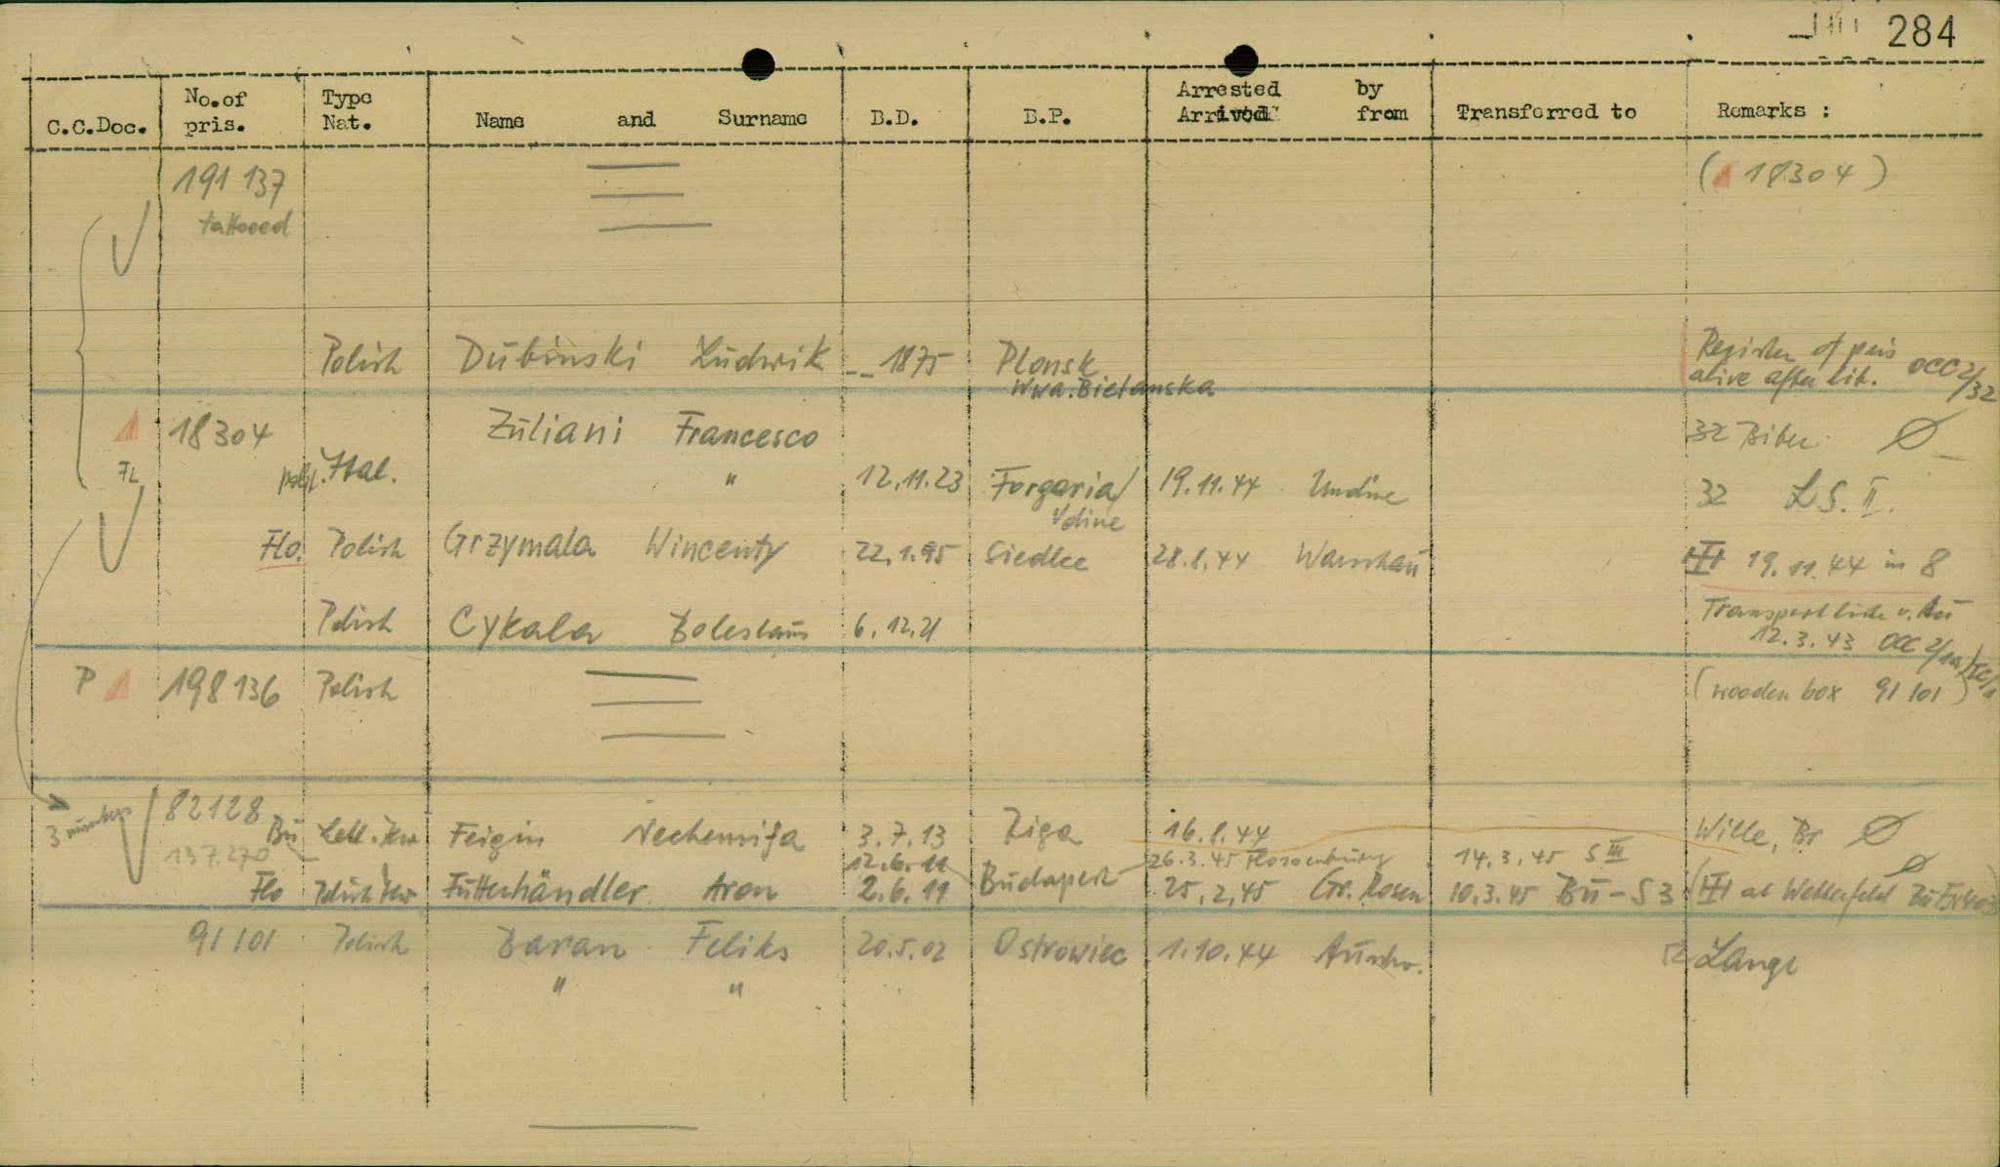 284
C.C.Doc. No.of pris. Type Nat. Name and Surname B.D. B.P. Arrested by Arrived from Transferred to Remarks :
191 137 (18304)
tattooed
Polish Dubinski Ludwik -- 1875 Plonsk Register of pris OCC 2/32
Wwa. Bielanska alive after lib.
18304 Zuliani Francesco 32
FL polit. Ital. " 12.11.23 Forgaria/ 19.11.44 Undine 32 LS. II.
Udine
Flo. Polish Grzymala Wincenty 22.1.95 Siedlce 28.8.44 Warschau 19.11.44 in 8
Polish Cykala Boleslaus 6.12.21 Transportliste v. Au
12.3.43 OCC
P 198136 Polish (wooden box 91101)
82128
3 number Bu Lett. Jew Feigin Nechemija 3.7.13 Riga 16.8.44 Wille, Br Ø
137.270 12.6.11 26.3.45 Flossenburg 14.3.45 S III Ø
Flo Polish Jew Futterhändler Aron 2.6.11 Budapest 25.2.45 Gr. Rosen 10.3.45 Bu - S 3 at Wetterfeld
91101 Polish Baran Feliks 20.5.02 Ostrowiec 1.10.44 Auschw. Lange
" "